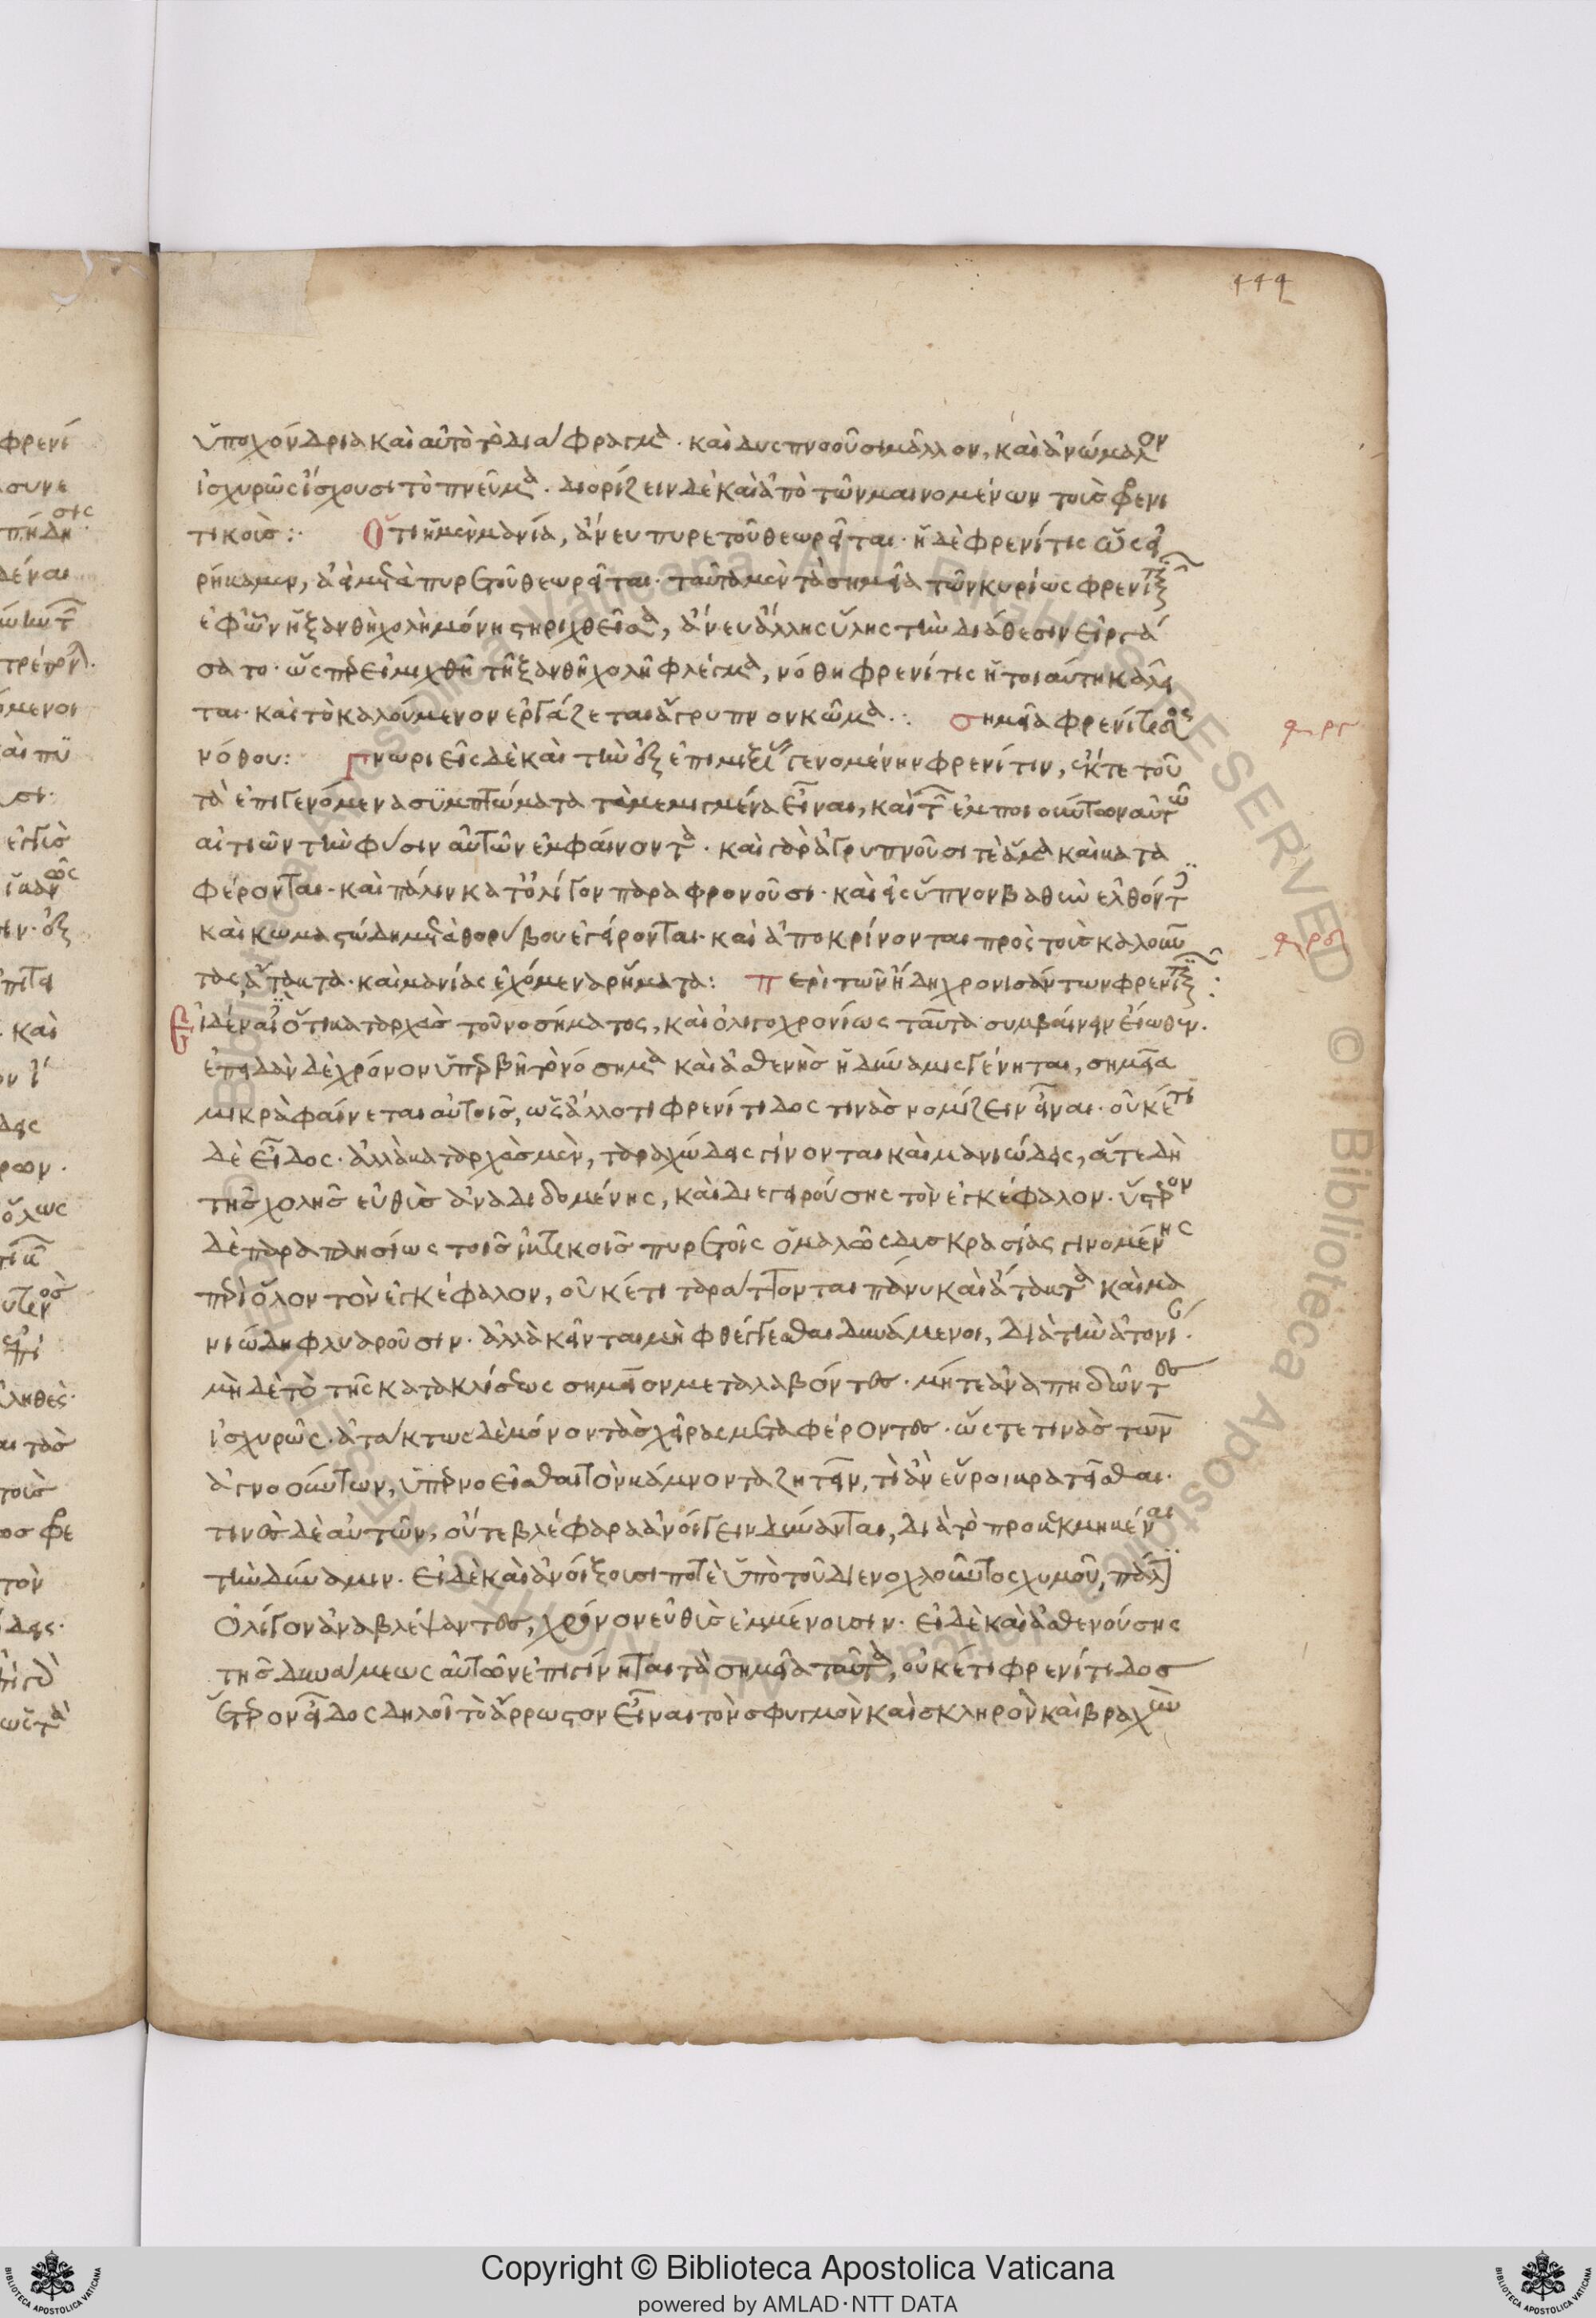 ὑποχόνδρια καὶ αὐτὸ τὸ διάφραγμα. καὶ δυσπνοοῦσι μᾶλλον, καὶ ἀνώμαλον
ἰσχυρῶς ἴσχουσι τὸ πνεῦμα. διορίζειν δὲ καὶ ἀπὸ τῶν μαινομένων τοὺς φρενι
τικούς: Ὅτι ἡ μὲν μανία, ἄνευ πυρετοῦ θεωρεῖται. ἡ δὲ φρενίτις ὡς εἰ
ρήκαμεν, ἀεὶ μετὰ πυρετοῦ θεωρεῖται. ταῦτα μὲν τὰ σημεῖα τῶν κυρίως φρενιτιζ
ἐφ' ὧν ἡ ξανθὴ χολὴ μόνη στηριχθεῖσα, ἄνευ ἄλλης ὕλης τὴν διάθεσιν εἰργά
σατο. ὥσπερ εἰ μιχθῆ τῆ ξανθῆ χολῆ φλέγμα, νόθη φρενίτις ἡ τοιαύτη καλεῖ
ται. καὶ τὸ καλούμενον ἐργάζεται ἄγρυπνον κῶμα. σημεῖα φρενίτεος
νόθου: Γνωριεῖς δὲ καὶ τὴν ἐξ ἐπιμιξίας γενομένην φρενίτιν, ἔκ τε τοῦ
τὰ ἐπιγενόμενα συμπτώματα τὰ μεμιγμένα εἶναι, καὶ τῶν ἐμποιούντων αὐτῶ
αἰτιῶν τὴν φύσιν αὐτῶν ἐμφαίνοντα. καὶ γὰρ ἀγρυπνοῦσί τε ἅμα καὶ κατα
φέρονται. καὶ πάλιν κατ' ὀλίγον παραφρονοῦσι. καὶ εἰς ὕπνον βαθὺν ἐλθόντ
καὶ κωματώδη μετὰ θορύβου ἐγείρονται. καὶ ἀποκρίνονται πρὸς τοὺς καλοῦν
τας, ἄτακτα. καὶ μανίας ἐχόμενα ῥήματα: περὶ τῶν ἤδη χρονισάντων φρενιτιζ:
Εἰδέναι ὅτι κατ' ἀρχὰς τοῦ νοσήματος, καὶ ὀλιγοχρονίως ταῦτα συμβαίνειν εἴωθεν.
ἐπειδὰν δὲ χρόνον ὑπερβῆ τὸ νόσημα καὶ ἀσθενὴς ἡ δύναμις γένηται, σημεῖα
μικρὰ φαίνεται αὐτοῖς, ὡς ἄλλο τι φρενίτιδος τινὰς νομίζειν εἶναι. οὐκέτι
δὲ εἶδος. ἀλλὰ κατ' ἀρχὰς μὲν, ταραχώδεις γίνονται καὶ μανιώδεις, ἅτε δὴ
τῆς χολῆς εὐθὺς ἀναδιδομένης, καὶ διεγειρούσης τὸν ἐγκέφαλον. ὕστερον
δὲ παραπλησίως τοῖς ἑκτικοῖς πυρετοῖς ὁμαλῶς δυσκρασίας γινομένης
περὶ ὅλον τὸν ἐγκέφαλον, οὐκέτι ταράττονται πάνυ καὶ ἄτακτα καὶ μα
νιώδη φλυαροῦσιν. ἀλλὰ κεῖνται μὴ φθέγγεσθαι δυνάμενοι, διὰ τὴν ἀτονί.
μὴ δὲ τὸ τῆς κατακλίσεως σημεῖον μεταλαβόντες. μήτε ἀναπηδῶντες
ἰσχυρῶς. ἀτάκτως δὲ μόνον τὰς χεῖρας μεταφέροντες. ὥστε τινὰς τῶν
ἀγνοούντων, ὑπερνοεῖσθαι τὸν κάμνοντα ζητεῖν, τί ἂν εὕροι κρατεῖσθαι.
τινὲς δὲ αὐτῶν, οὔτε βλέφαρα ἀνοίγειν δύνανται, διὰ τὸ προκεκμηκέναι
τὴν δύναμιν. εἰ δὲ καὶ ἀνοίξουσι ποτὲ ὑπὸ τοῦ διενοχλοῦντος χυμοῦ, πάλ
ὀλίγον ἀναβλέψαντες, χρόνον εὐθὺς ἐμμένουσιν. εἰ δὲ καὶ ἀσθενούσης
τῆς δυνάμεως αὐτῶν ἐπιγίνηται τὰ σημεῖα ταῦτα, οὐκέτι φρενίτιδος
ἕτερον εἶδος δηλοῖ τὸ ἄρρωστον εἶναι τὸν σφυγμὸν καὶ σκληρὸν καὶ βραχὺν
Copyright © Biblioteca Apostolica Vaticana
powered by AMLAD·NTT DATA